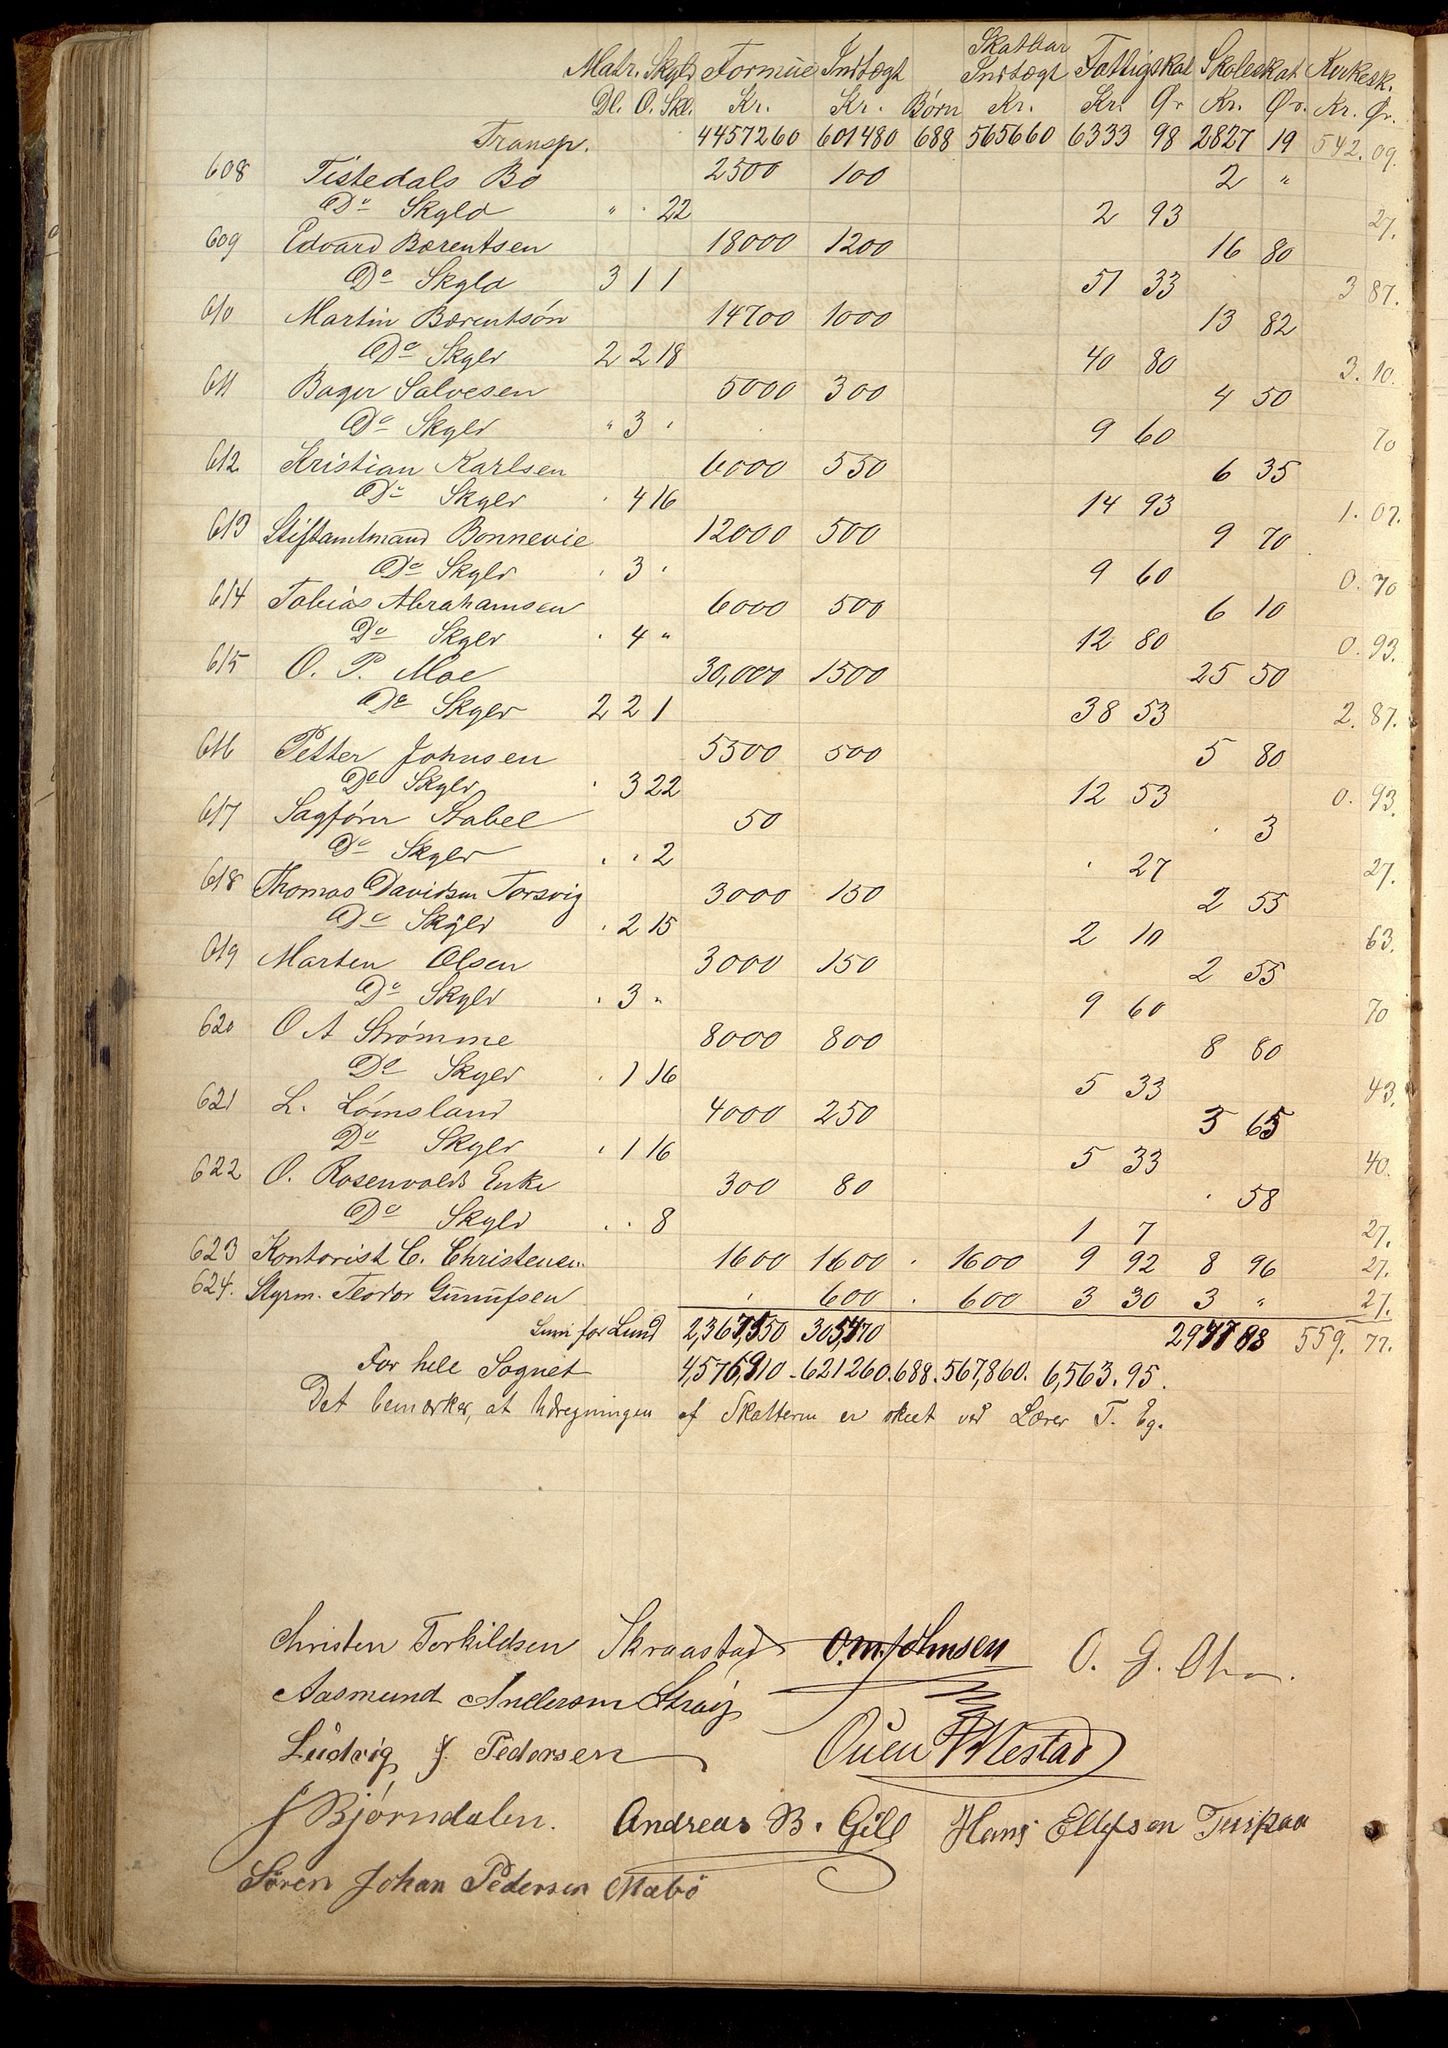 Matr. Skyld Formue Indtægt Skatbar Indtægt Fattigskat Skoleskat Kirkesk.
Dl. O. Skl. Kr. Kr. Børn Kr. Kr. Ør Kr. Ør. Kr. Ør.
Transp. 4457260 601480 688 565660 6333 98 2827 19 542. 09.
608 Tistedals Bo 2500 100 2 "
Do Skyld " . 22 2 93 27.
609 Edvard Bærentsen 18000 1200 16 80
Do Skyld 3 1 1 51 33 3 87.
610 Martin Bærentsøn 14700 1000 13 82
Do Skyld 2 2 18 40 80 3. 10.
611 Bager Salvesen 5000 300 4 50
Do Skyld " 3 " 9 60 70
612 Kristian Karlsen 6000 550 6 35
Do Skyld . 4 16 14 93 1. 07.
613 Stiftamtmand Bonnevie 12000 500 9 70
Do Skyld . 3 . 9 60 0. 70
614 Tobias Abrahamsen 6000 500 6 10
Do Skyld . 4 " 12 80 0. 93.
615 O. P. Moe 30,000 1500 25 50
Do Skyld 2 2 1 38 53 2. 87.
616 Petter Johnsen 5500 500 5 80
Do Skyld . 3 22 12 53 0. 93.
617 Sagfører Stabel 50 . 3
Do Skyld . . 2 . 27 27.
618 Thomas Davidsen Torsvig 3000 150 2 55
Do Skyld . 2 15 2 10 63.
619 Marten Olsen 3000 150 2 55
Do Skyld . 3 " 9 60 70
620 O A Strømme 8000 800 8 80
Do Skyld . 1 16 5 33 43.
621 L. Lømsland 4000 250 3 65
Do Skyld . 1 16 5 33 40.
622 O. Rosenvolds Enke 300 80 . 58
Do Skyld . . 8 1 7 27.
623 Kontorist C. Christensen 1600 1600 . 1600 9 92 8 96 27.
624. Styrm. Teodor Gunufsen . 600 . 600 3 30 3 " 27.
Sum for Lund 2,367,550 305,470 2977 88 559. 77.
For hele Sognet 4,576,910 - 621260. 688. 567,860. 6,563. 95.
Det bemærkes, at Udregningen af Skatterne er skeet ved Lærer T. Eg.
Christen Torkildsen Skraastad O. M. Johnsen O. G.
Aasmund Andersen Straij
Ludvig J. Pedersen Ouen Westad
J Bjørndalen. Andreas B. Gill Hans Ellefsen
Søren Johan Pedersen Mæbø